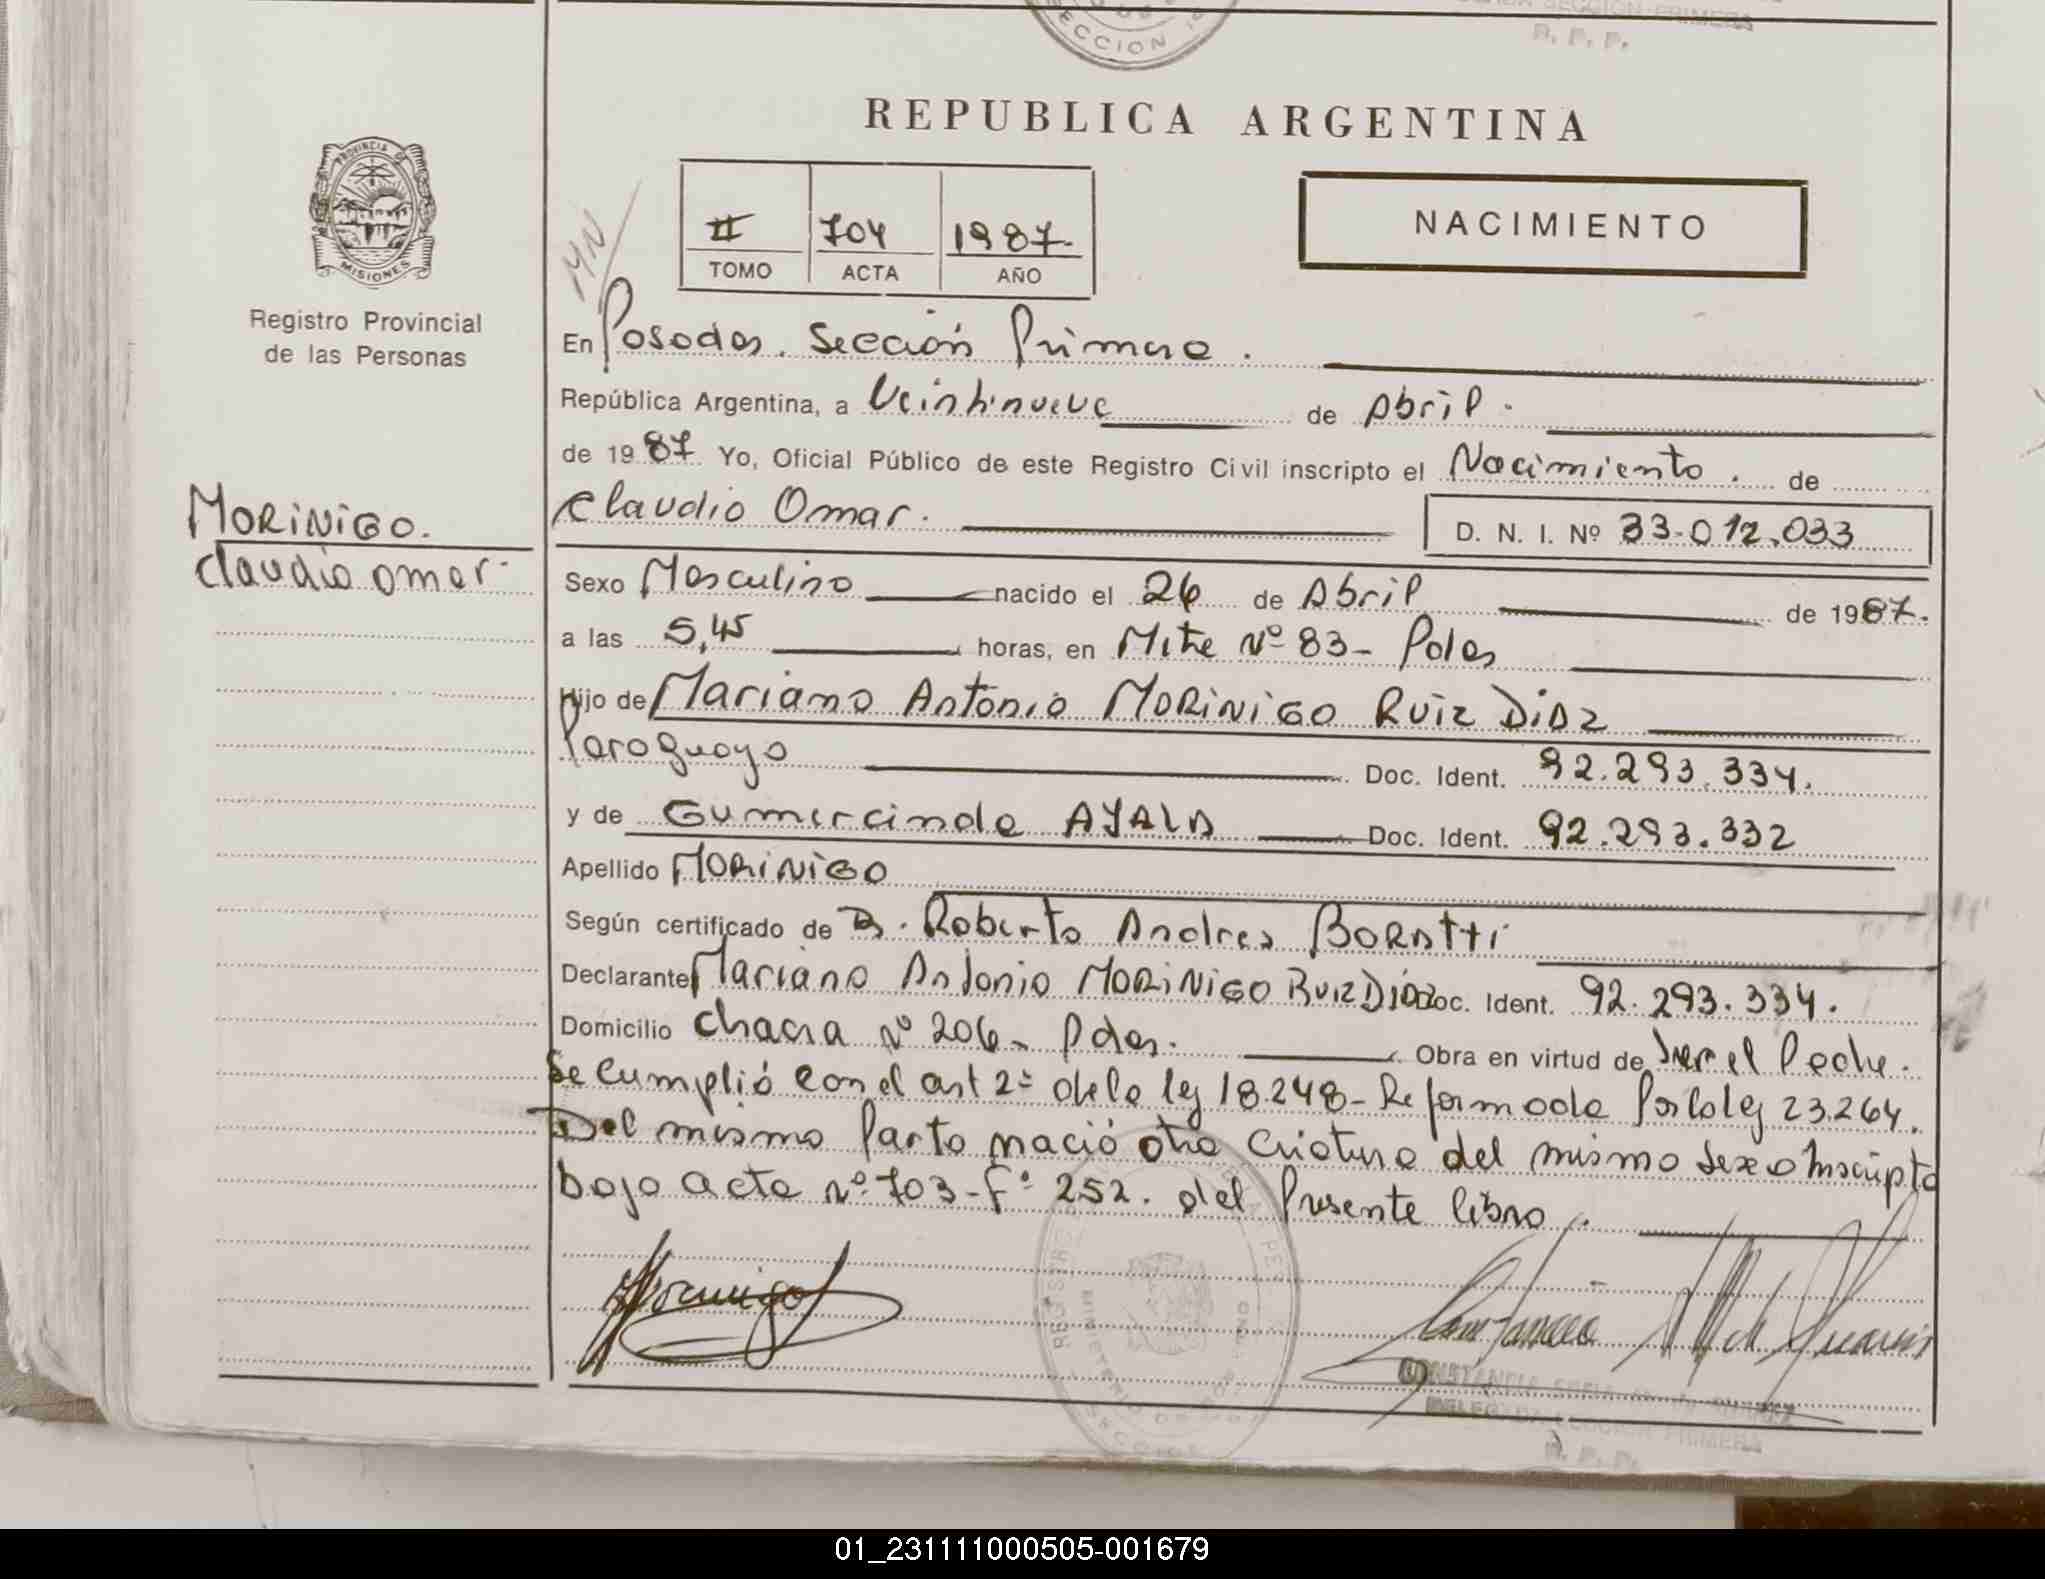 SECCION 1ª
SECCION PRIMERA
R. P. P.
REPUBLICA ARGENTINA
PROVINCIA DE
MISIONES
Registro Provincial
de las Personas
MN
II 704 1987.
TOMO ACTA AÑO
NACIMIENTO
En Posadas. Sección Primera.
República Argentina, a Veintinueve de Abril.
de 1987 Yo, Oficial Público de este Registro Civil inscripto el Nacimiento. de
Claudio Omar. D. N. I. Nº 33.012.033
MORINIGO.
Claudio Omar.
Sexo Masculino nacido el 26 de Abril de 1987.
a las 5,45 horas, en Mitre Nº 83- Pdas
Hijo de Mariano Antonio MORINIGO RUIZ DIAZ
Paraguayo Doc. Ident. 92.293.334.
y de Gumercinda AYALA Doc. Ident. 92.293.332
Apellido MORINIGO
Según certificado de Dr. Roberto Andres BORATTI
Declarante Mariano Antonio MORINIGO RUIZ DIAZ Doc. Ident. 92.293.334.
Domicilio Chacra Nº 206- Pdas. Obra en virtud de Ser el Padre.
Se Cumplió con el art 2º de la ley 18.248- Reformada Por la ley 23.264.
Del mismo Parto nació otra Criatura del mismo sexo Inscripta
bajo acta nº 703-Fº 252. del Presente libro.
Morinigo
SECCION PRIMERA
R. P. P.
01_231111000505-001679